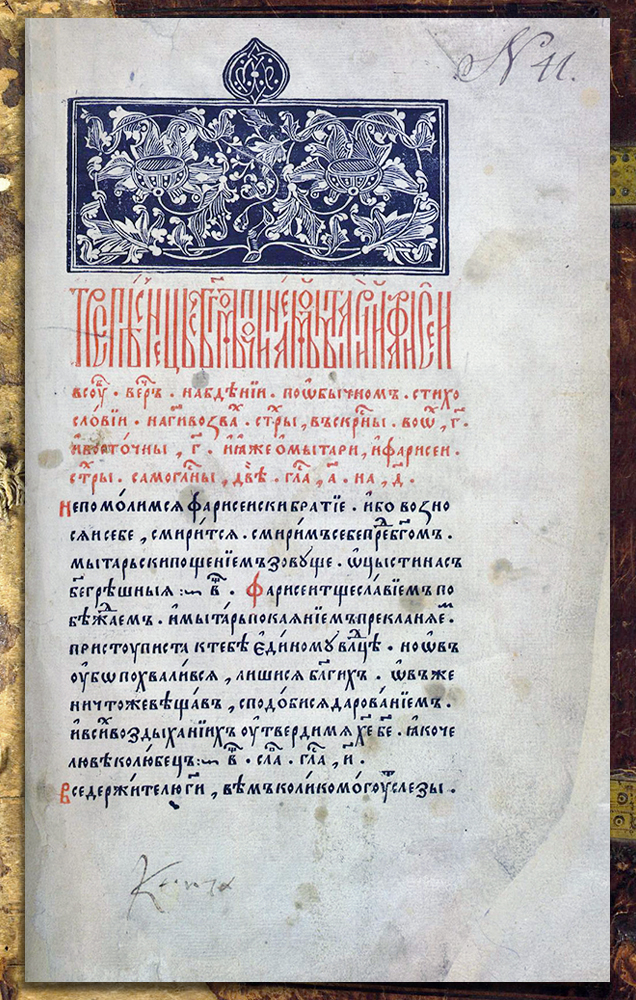 N 41.
всоу҃ . веч҃ръ . на бдѣнїи . поѡбычномъ . стихо
сло́вїи . нагивозва́х . стх҃ры , въскр҃ны . вѡѡ҃ , г҃ .
ивосто́чны , г҃ . и҆ и҆́же ѡ҆мытари , и҆фарисеи .
стх҃ры . самогла҃ны , двѣ̀ . гла҃ , а҃ . на , д҃ .
Непомо́лимсѧ фарисеиски братїе . и҆бо возно
сѧисебе , смири́тсѧ . смири́мъсебепредб҃гомъ .
мытарьскипощенїемъзовуще . ѡ҆цыстинасъ
бе҃грѣшныѧ : в҃ . Фарисеитщесла́вїемъпо
бѣжа́емъ . и҆мы́тарьпокаѧ́нїемъпреклонѧ́е .
пристоуписта ктебѣ є҆ди́номувл҃цѣ . ноѡ҆въ
оу҆бѡ похвали́всѧ , лишисѧ бл҃гихъ . ѡ҆въже
ничтожевѣща́въ , сподо́бисѧдарова́нїемъ .
и҆всихвоздыха́нїихъ оу҆твердимѧ х҃е б҃е . ꙗ҆коче
лювѣколю́бецъ : в҃ . сла҃ . гла҃ , и҃ .
Вседержи́телюг҃и , вѣмъколикомо́гоутъслезы .
Книга